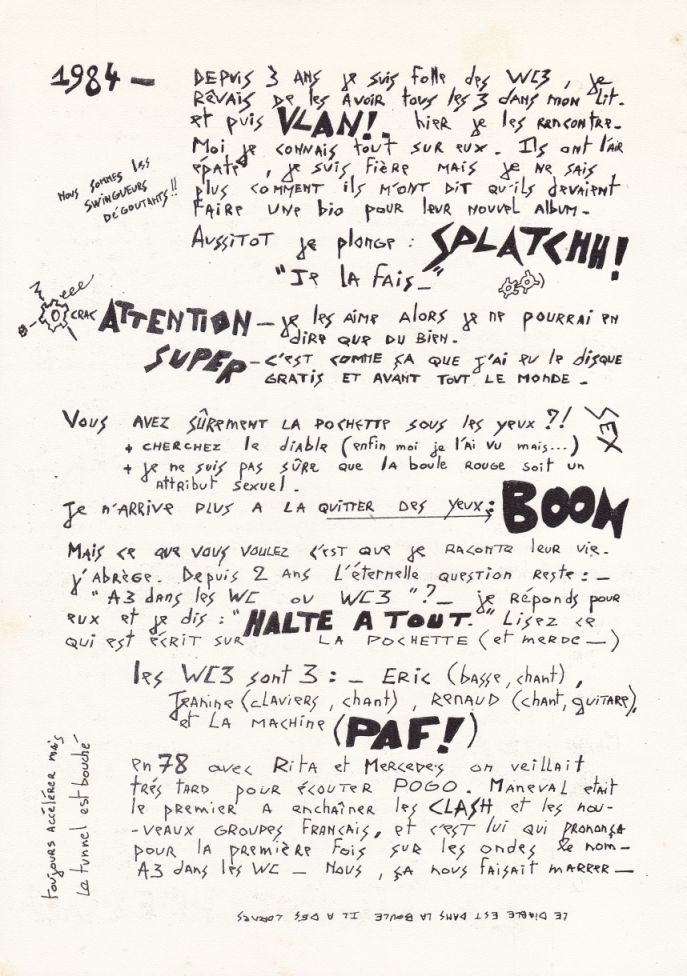 1984 — DEPUIS 3 ANS je suis folle des WC3, je
RÊVAIS DE les AVOIR tous les 3 dans mon lit.
et puis VLAN!. hier je les rencontre.
Moi je connais tout sur eux. Ils ont l'air
épatés, je suis fière mais je ne sais
plus comment ils m'ont dit qu'ils devaient
faire une bio pour leur nouvel album.
NOUS SOMMES les
SWINGUEURS
DÉGOUTANTS!!
Aussitot je plonge : SPLATCHH!
"Je la fais_"
CRAC
ATTENTION — je les aime alors je ne pourrai en
dire que du bien.
SUPER — c'est comme ça que j'ai eu le disque
gratis et avant tout le monde.
Vous avez sûrement la pochette sous les yeux ?!
SEX
+ cherchez le diable (enfin moi je l'ai vu mais...)
+ je ne suis pas sûre que la boule rouge soit un
attribut sexuel.
Je n'arrive plus a la quitter des yeux: BOOM
Mais ce que vous voulez c'est que je raconte leur vie.
j'abrège. Depuis 2 ans l'éternelle question reste : —
"A3 dans les WC ou WC3"?_ je réponds pour
eux et je dis : "HALTE A TOUT." Lisez ce
qui est écrit sur la pochette (et merde —)
les WC3 sont 3 : — Eric (basse, chant),
Jeanine (claviers, chant), Renaud (chant, guitare),
et La machine (PAF!)
en 78 avec Rita et Mercedes on veillait
très tard pour écouter POGO. Maneval etait
le premier a enchaîner les CLASH et les nou-
-veaux groupes français, et c'est lui qui prononça
pour la première fois sur les ondes le nom—
A3 dans les WC — Nous, ça nous faisait marrer —
toujours accélérer mais
Le tunnel est bouché
LE DIABLE EST DANS LA BOULE IL A DES CORNES